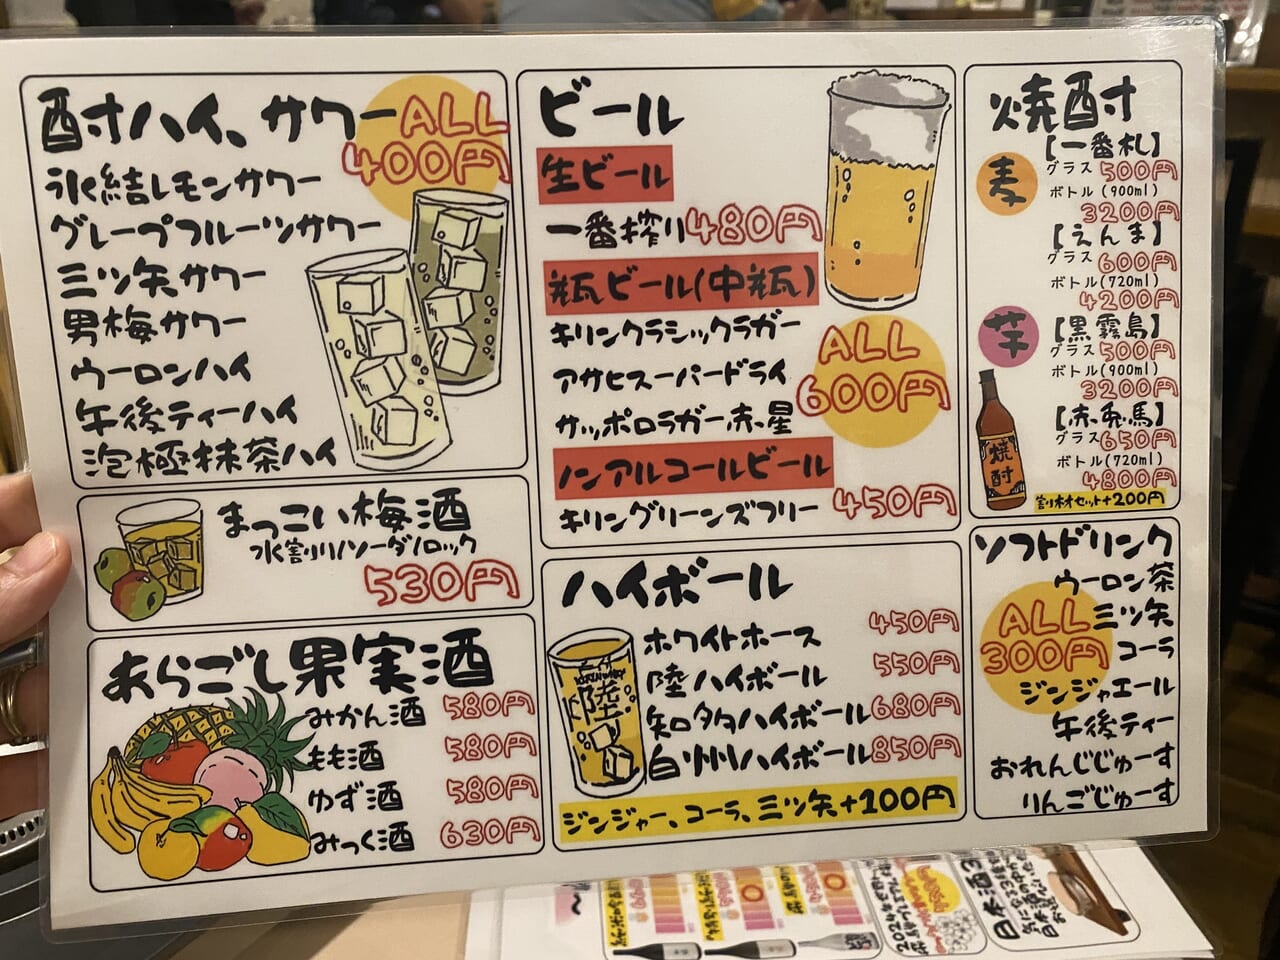 酎ハイ、サワー ALL 400円
氷結レモンサワー
グレープフルーツサワー
三ツ矢サワー
男梅サワー
ウーロンハイ
午後ティーハイ
泡極抹茶ハイ
まっこい梅酒
水割り/ソーダ/ロック
530円
あらごし果実酒
みかん酒 580円
もも酒 580円
ゆず酒 580円
みっく酒 630円
ビール
生ビール
一番搾り 480円
瓶ビール(中瓶)
キリンクラシックラガー
アサヒスーパードライ
サッポロラガー赤星
ALL 600円
ノンアルコールビール
キリングリーンズフリー 450円
ハイボール
ホワイトホース 450円
陸ハイボール 550円
知多ハイボール 680円
白州ハイボール 850円
ジンジャー、コーラ、三ツ矢+100円
陸
焼酎
麦
【一番札】
グラス 500円
ボトル(900ml)
3200円
【えんま】
グラス 600円
ボトル(720ml)
4200円
芋
【黒霧島】
グラス 500円
ボトル(900ml)
3200円
【赤兎馬】
グラス 650円
ボトル(720ml)
4800円
割り材セット+200円
焼酎
ソフトドリンク
ALL 300円
ウーロン茶
三ツ矢
コーラ
ジンジャエール
午後ティー
おれんじじゅーす
りんごじゅーす
日本酒3